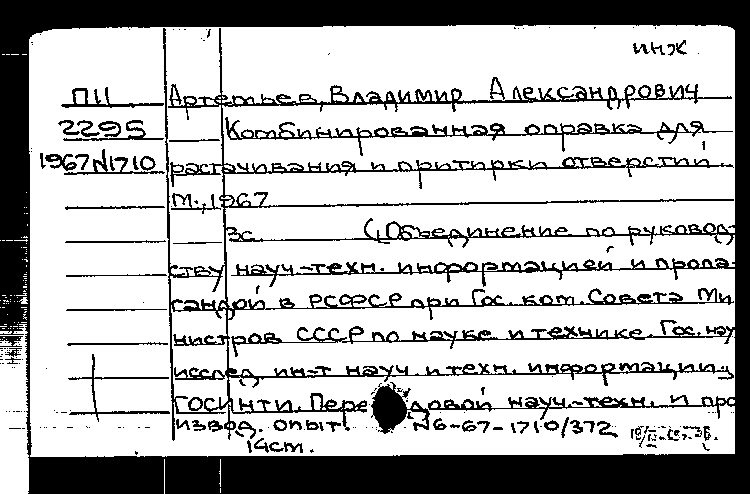 инж
П11 Артемьев, Владимир Александрович
2295 Комбинированная оправка для
1967N1710 растачивания и притирки отверстий
М., 1967
3с. (Объединение по руковод-
ству науч-техн. информацией и пропа-
гандой в РСФСР при Гос. ком. Совета Ми
нистров СССР по науке и технике. Гос. науч
исслед. ин-т науч. и техн. информации.
ГОСИНТИ. Передовой науч.-техн. и про
извод. опыт. N6-67-1710/372
14cm.